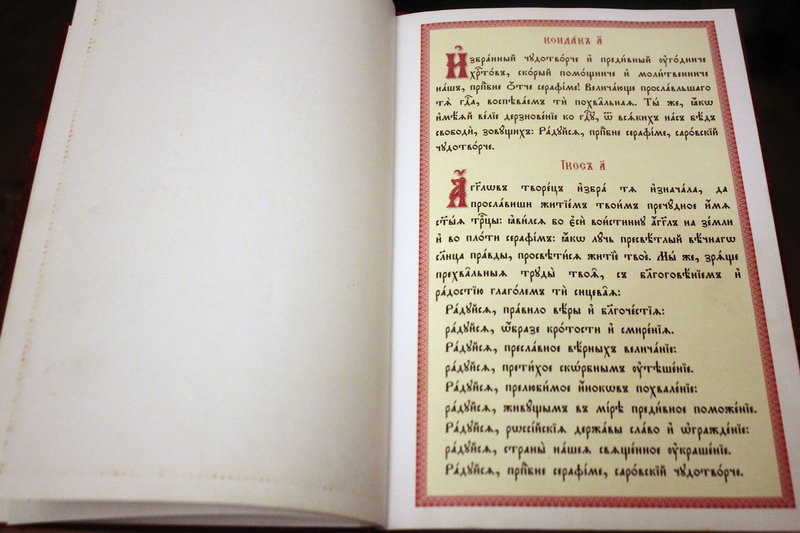 Конда́къ а҃
И҆збра́нный чꙋдотво́рче и҆ преди́вный ᲂу҆го́дниче
хрⷭ҇то́въ, ско́рый помо́щниче и҆ моли́твенниче
на́шъ, прпⷣбне ѻ҆́тче серафі́ме! Велича́юще просла́вльшаго
тѧ̀ гдⷭ҇а, воспѣва́емъ тѝ похва́льнаѧ. Ты́ же, ꙗ҆́кѡ
и҆мѣ́ѧй ве́лїе дерзнове́нїе ко гдⷭ҇ꙋ, ѿ всѧ́кихъ на́съ бѣ́дъ
свободѝ, зовꙋ́щихъ: Ра́дꙋйсѧ, прпⷣбне серафі́ме, саро́вскїй
чꙋдотво́рче.
І҆́косъ а҃
А҆́гг҃лѡвъ творе́цъ и҆збра̀ тѧ̀ и҆знача́ла, да
просла́виши житїе́мъ твои́мъ пречꙋ́дное и҆́мѧ
ст҃ы́ѧ трⷪ҇цы: ꙗ҆ви́лсѧ бо є҆сѝ вои́стиннꙋ а҆́гг҃лъ на землѝ
и҆ во пло́ти серафі́мъ: ꙗ҆́кѡ лꙋ́чь пресвѣ́тлый вѣ́чнагѡ
сл҃нца пра́вды, просвѣти́сѧ житїѐ твоѐ. Мы́ же, зрѧ́ще
прехва̑льныѧ трꙋды̀ твоѧ̑, съ бл҃гоговѣ́нїемъ и҆
ра́достїю глаго́лемъ тѝ сицева̑ѧ:
Ра́дꙋйсѧ, пра́вило вѣ́ры и҆ бл҃гоче́стїѧ:
ра́дꙋйсѧ, ѡ҆́бразе кро́тости и҆ смире́нїѧ.
Ра́дꙋйсѧ, пресла́вное вѣ́рныхъ велича́нїе:
ра́дꙋйсѧ, прети́хое скѡ́рбнымъ ᲂу҆тѣше́нїе.
Ра́дꙋйсѧ, прелюби́мое и҆́нокѡвъ похвале́нїе:
ра́дꙋйсѧ, живꙋ́щымъ въ мі́рѣ преди́вное поможе́нїе.
Ра́дꙋйсѧ, рѡссі́йскїѧ держа́вы сла́во и҆ ѡ҆гражде́нїе:
ра́дꙋйсѧ, страны̀ на́шеѧ свѧще́нное ᲂу҆краше́нїе.
Ра́дꙋйсѧ, прпⷣбне серафі́ме, саро́вскїй чꙋдотво́рче.